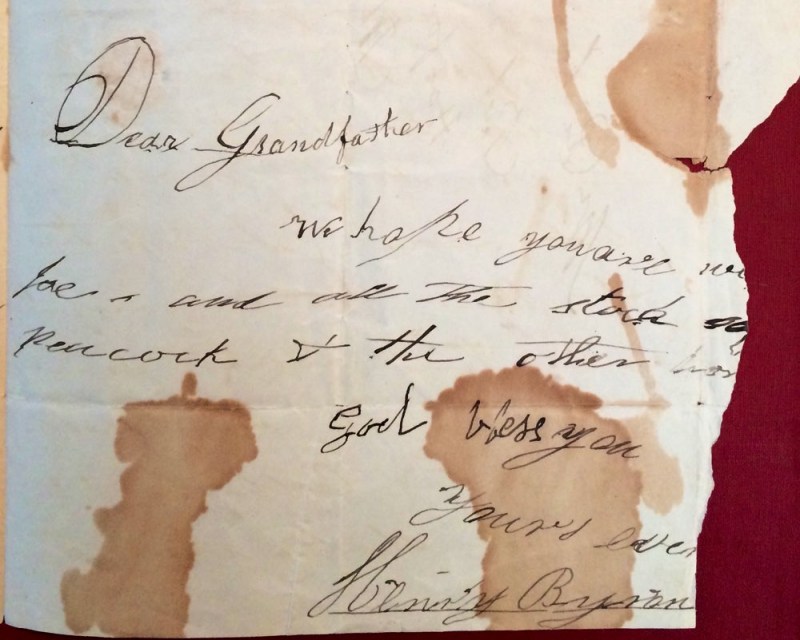 Dear Grandfather
we hope you are
and all the stock
Peacock & the other
God bless you
yours ever
Henry Byron